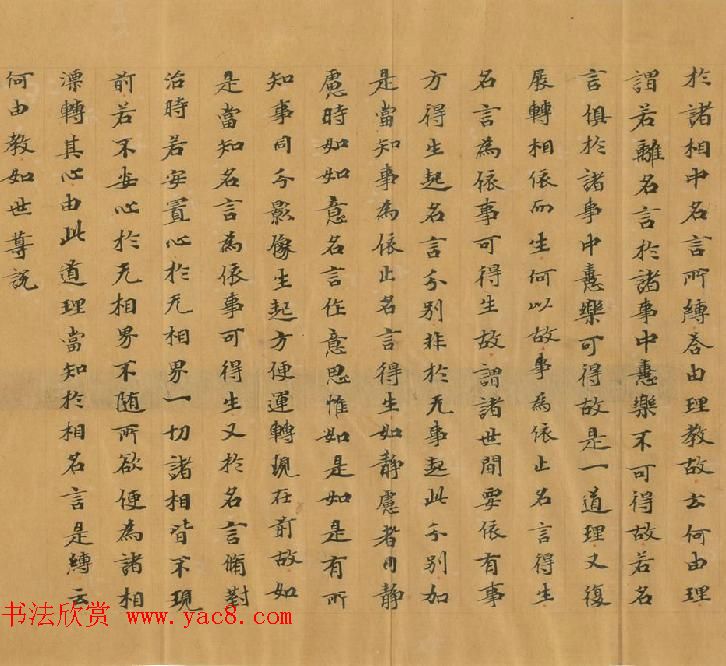 於諸相中名言所縛荅由理教故云何由理
謂若離名言於諸事中憙樂不可得故若名
言俱於諸事中憙樂可得故是一道理又復
展轉相依而生何以故事為依止名言得生
名言為依事可得生故謂諸世間要依有事
方得生起名言分别非於无事起此分别如
是當知事為依止名言得生如静慮者内静
慮時如如意名言作意思惟如是如是有所
知事同分影像生起方便運轉現在前故如
是當知名言為依事可得生又於名言脩對
治時若安置心於无相界一切諸相皆不現
前若不安心於无相界不随所欲便為諸相
漂轉其心由此道理當知於相名言是縛云
何由教如世尊説
书法欣赏 www.yac8.com